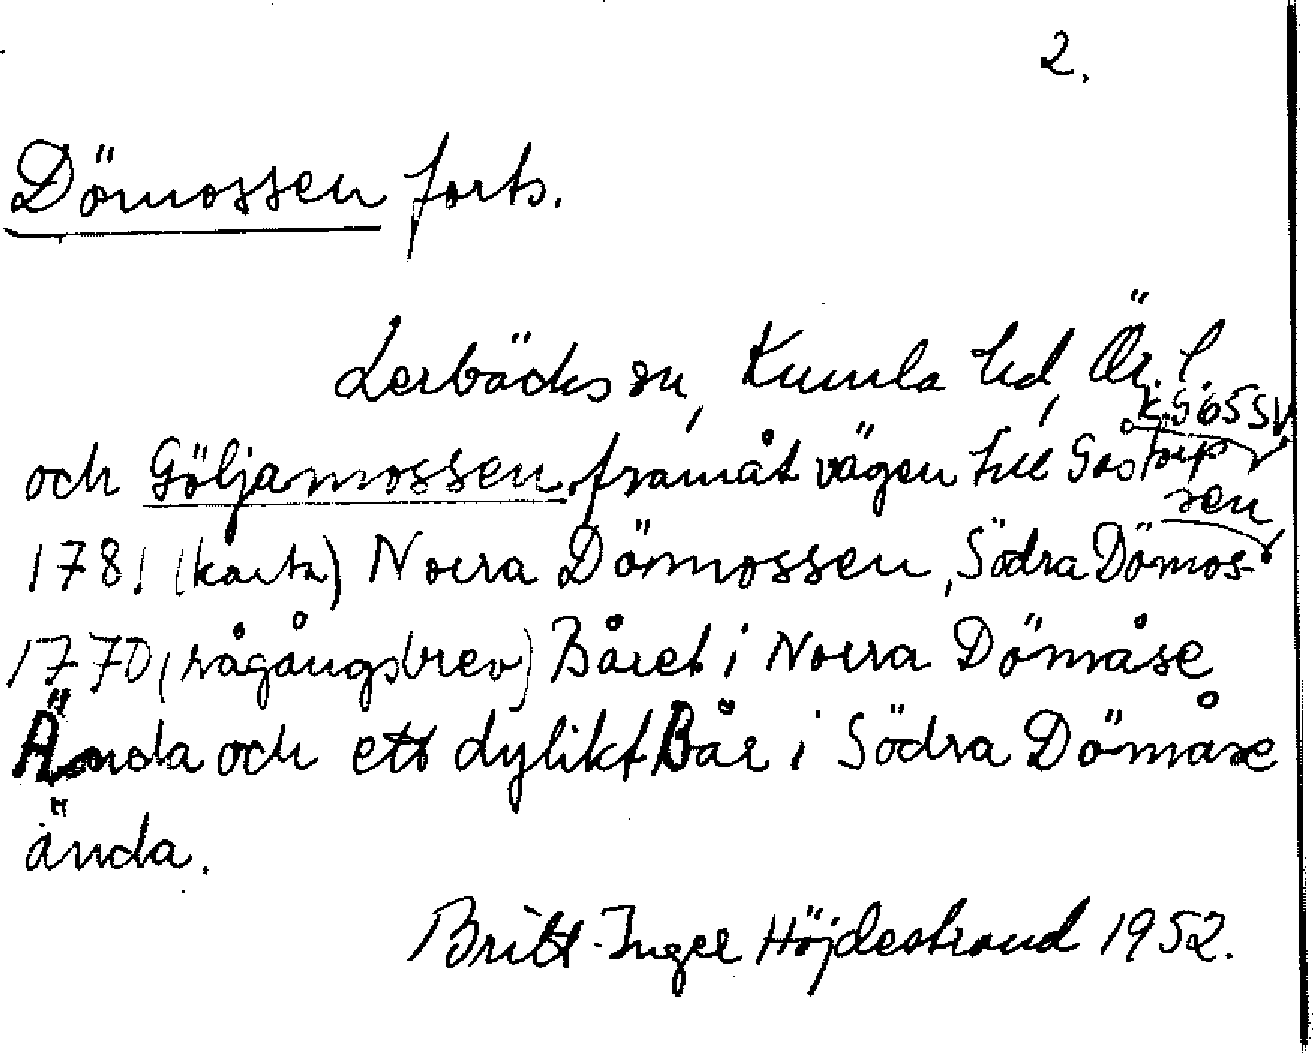 2.
Dömossen forts.
Lerbäcks sn, Kumla hd, Ör. l.
och Göljamossen framåt vägen till Gåstorp
1781 (karta) Norra Dömossen, Södra Dömos-
sen
1770 (rågångsbrev) Båret i Norra Dömåse
Ända och ett dylikt Bår i Södra Dömåse
ända.
Britt-Inger Höjdestrand 1952.